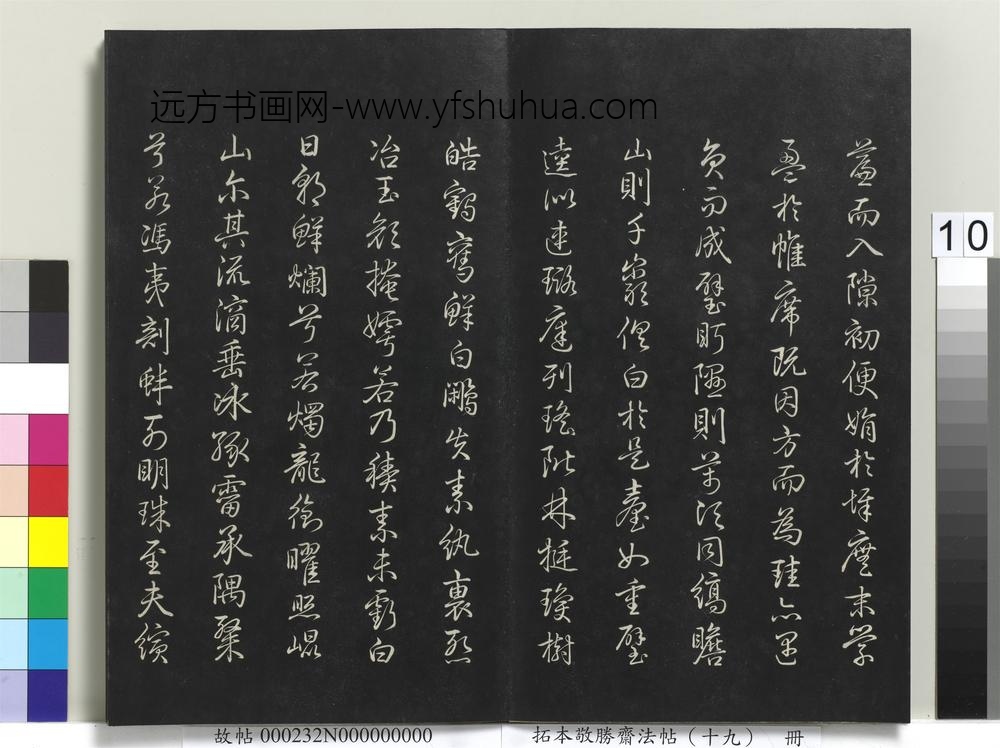 远方书画网-www.yfshuhua.com
蓋而入隙初便娟於墀廡末縈
盈於帷席既因方而為珪亦遇
員而成璧眄隰則萬頃同縞瞻
山則千巖俱白於是臺如重璧
逵似連璐庭列瑤階林挺瓊樹
皓鶴奪鮮白鷳失素紈褏慙
冶玉顏掩嫮若乃積素未虧白
日朝鮮爛兮若燭龍銜曜照崐
山尔其流滴垂冰緣霤承隅粲
兮若馮夷剖蚌列明珠至夫繽
10
故帖 000232N000000000
拓本敬勝齋法帖（十九） 冊